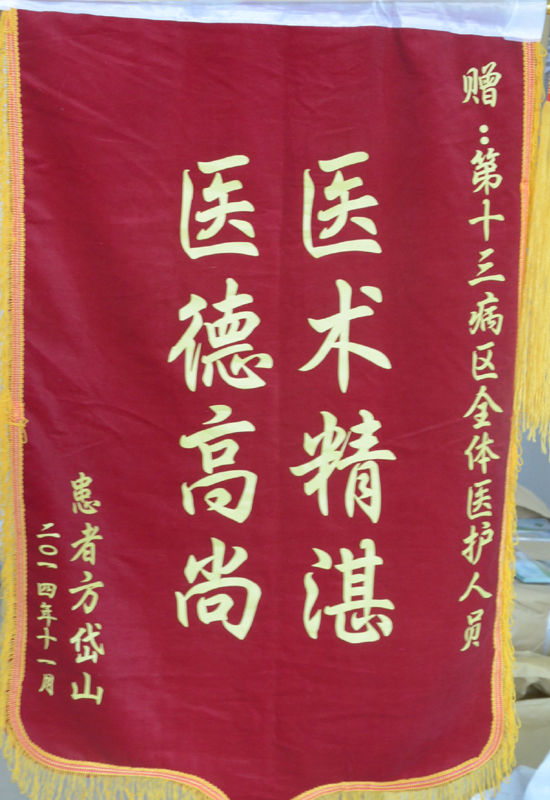 赠：第十三病区全体医护人员
医术精湛
医德高尚
患者方岱山
二〇一四年十一月